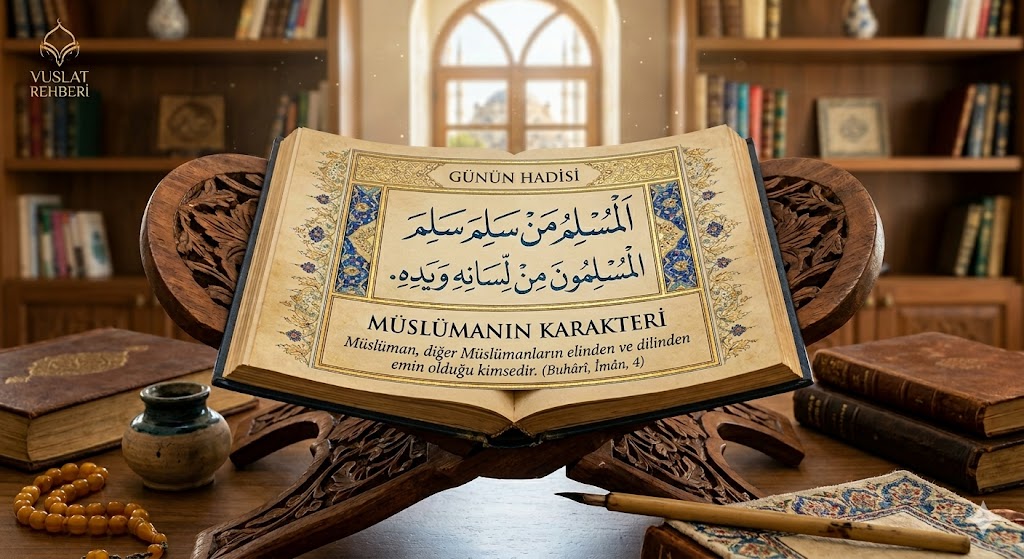 VUSLAT
REHBERİ
GÜNÜN HADİSİ
اَلْمُسْلِمُ مَنْ سَلِمَ سَلِمَ
الْمُسْلِمُونَ مِنْ لِّسَانِهِ وَيَدِهِ.
MÜSLÜMANIN KARAKTERİ
Müslüman, diğer Müslümanların elinden ve dilinden
emin olduğu kimsedir. (Buhârî, Îmân, 4)